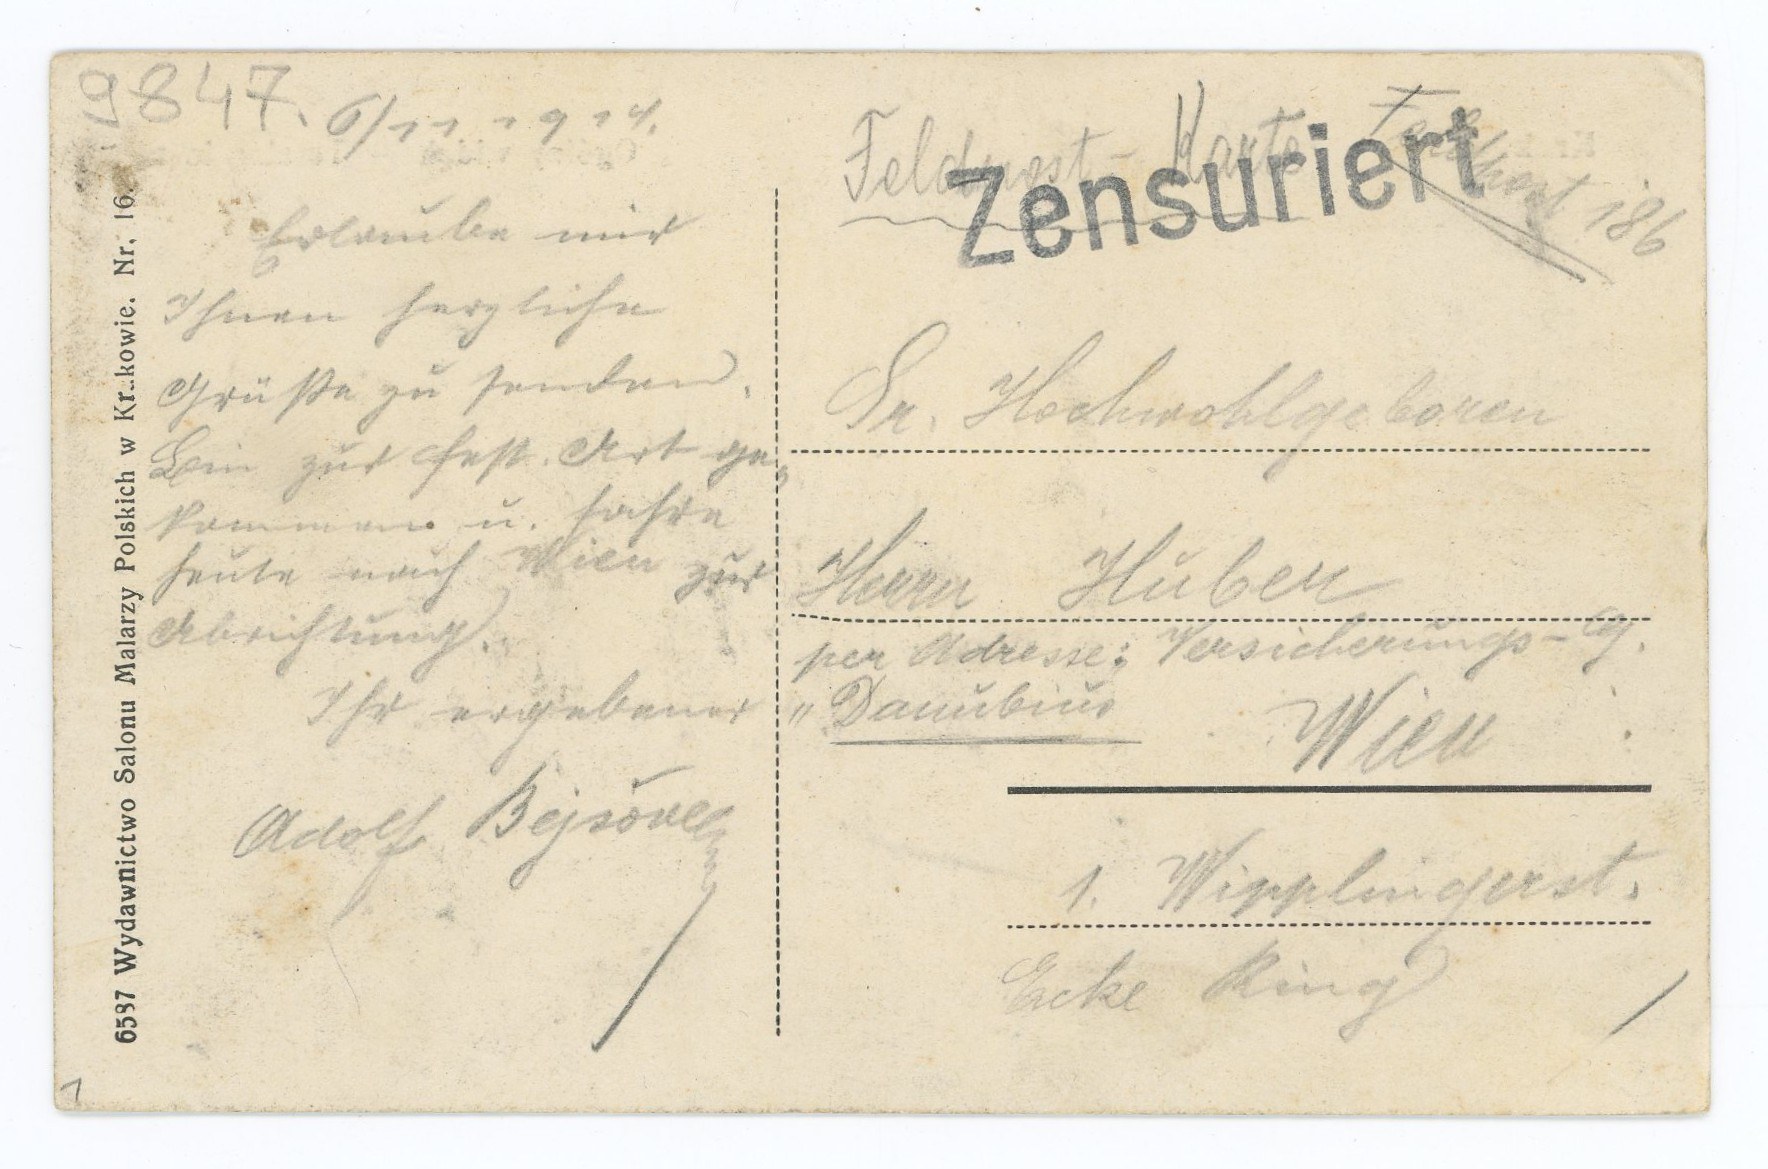 9847.
6/11 1914.
Erlaube mir
Ihnen herzliche
Grüße zu senden.
Bin zur Fest. Art ge-
kommen u. fahre
heute nach Wien zur
Abrichtung.
Ihr ergebener
Adolf
6537 Wydawnictwo Salonu Malarzy Polskich w Krakowie. Nr. 16.
Feldpost-Karte
Feldpost 186
Zensuriert
Sr. Hochwohlgeboren
Herrn Huber
per Adresse: Versicherungs-Cg.
"Danubius
Wien
1. Wipplingerst.
Ecke Ring
1